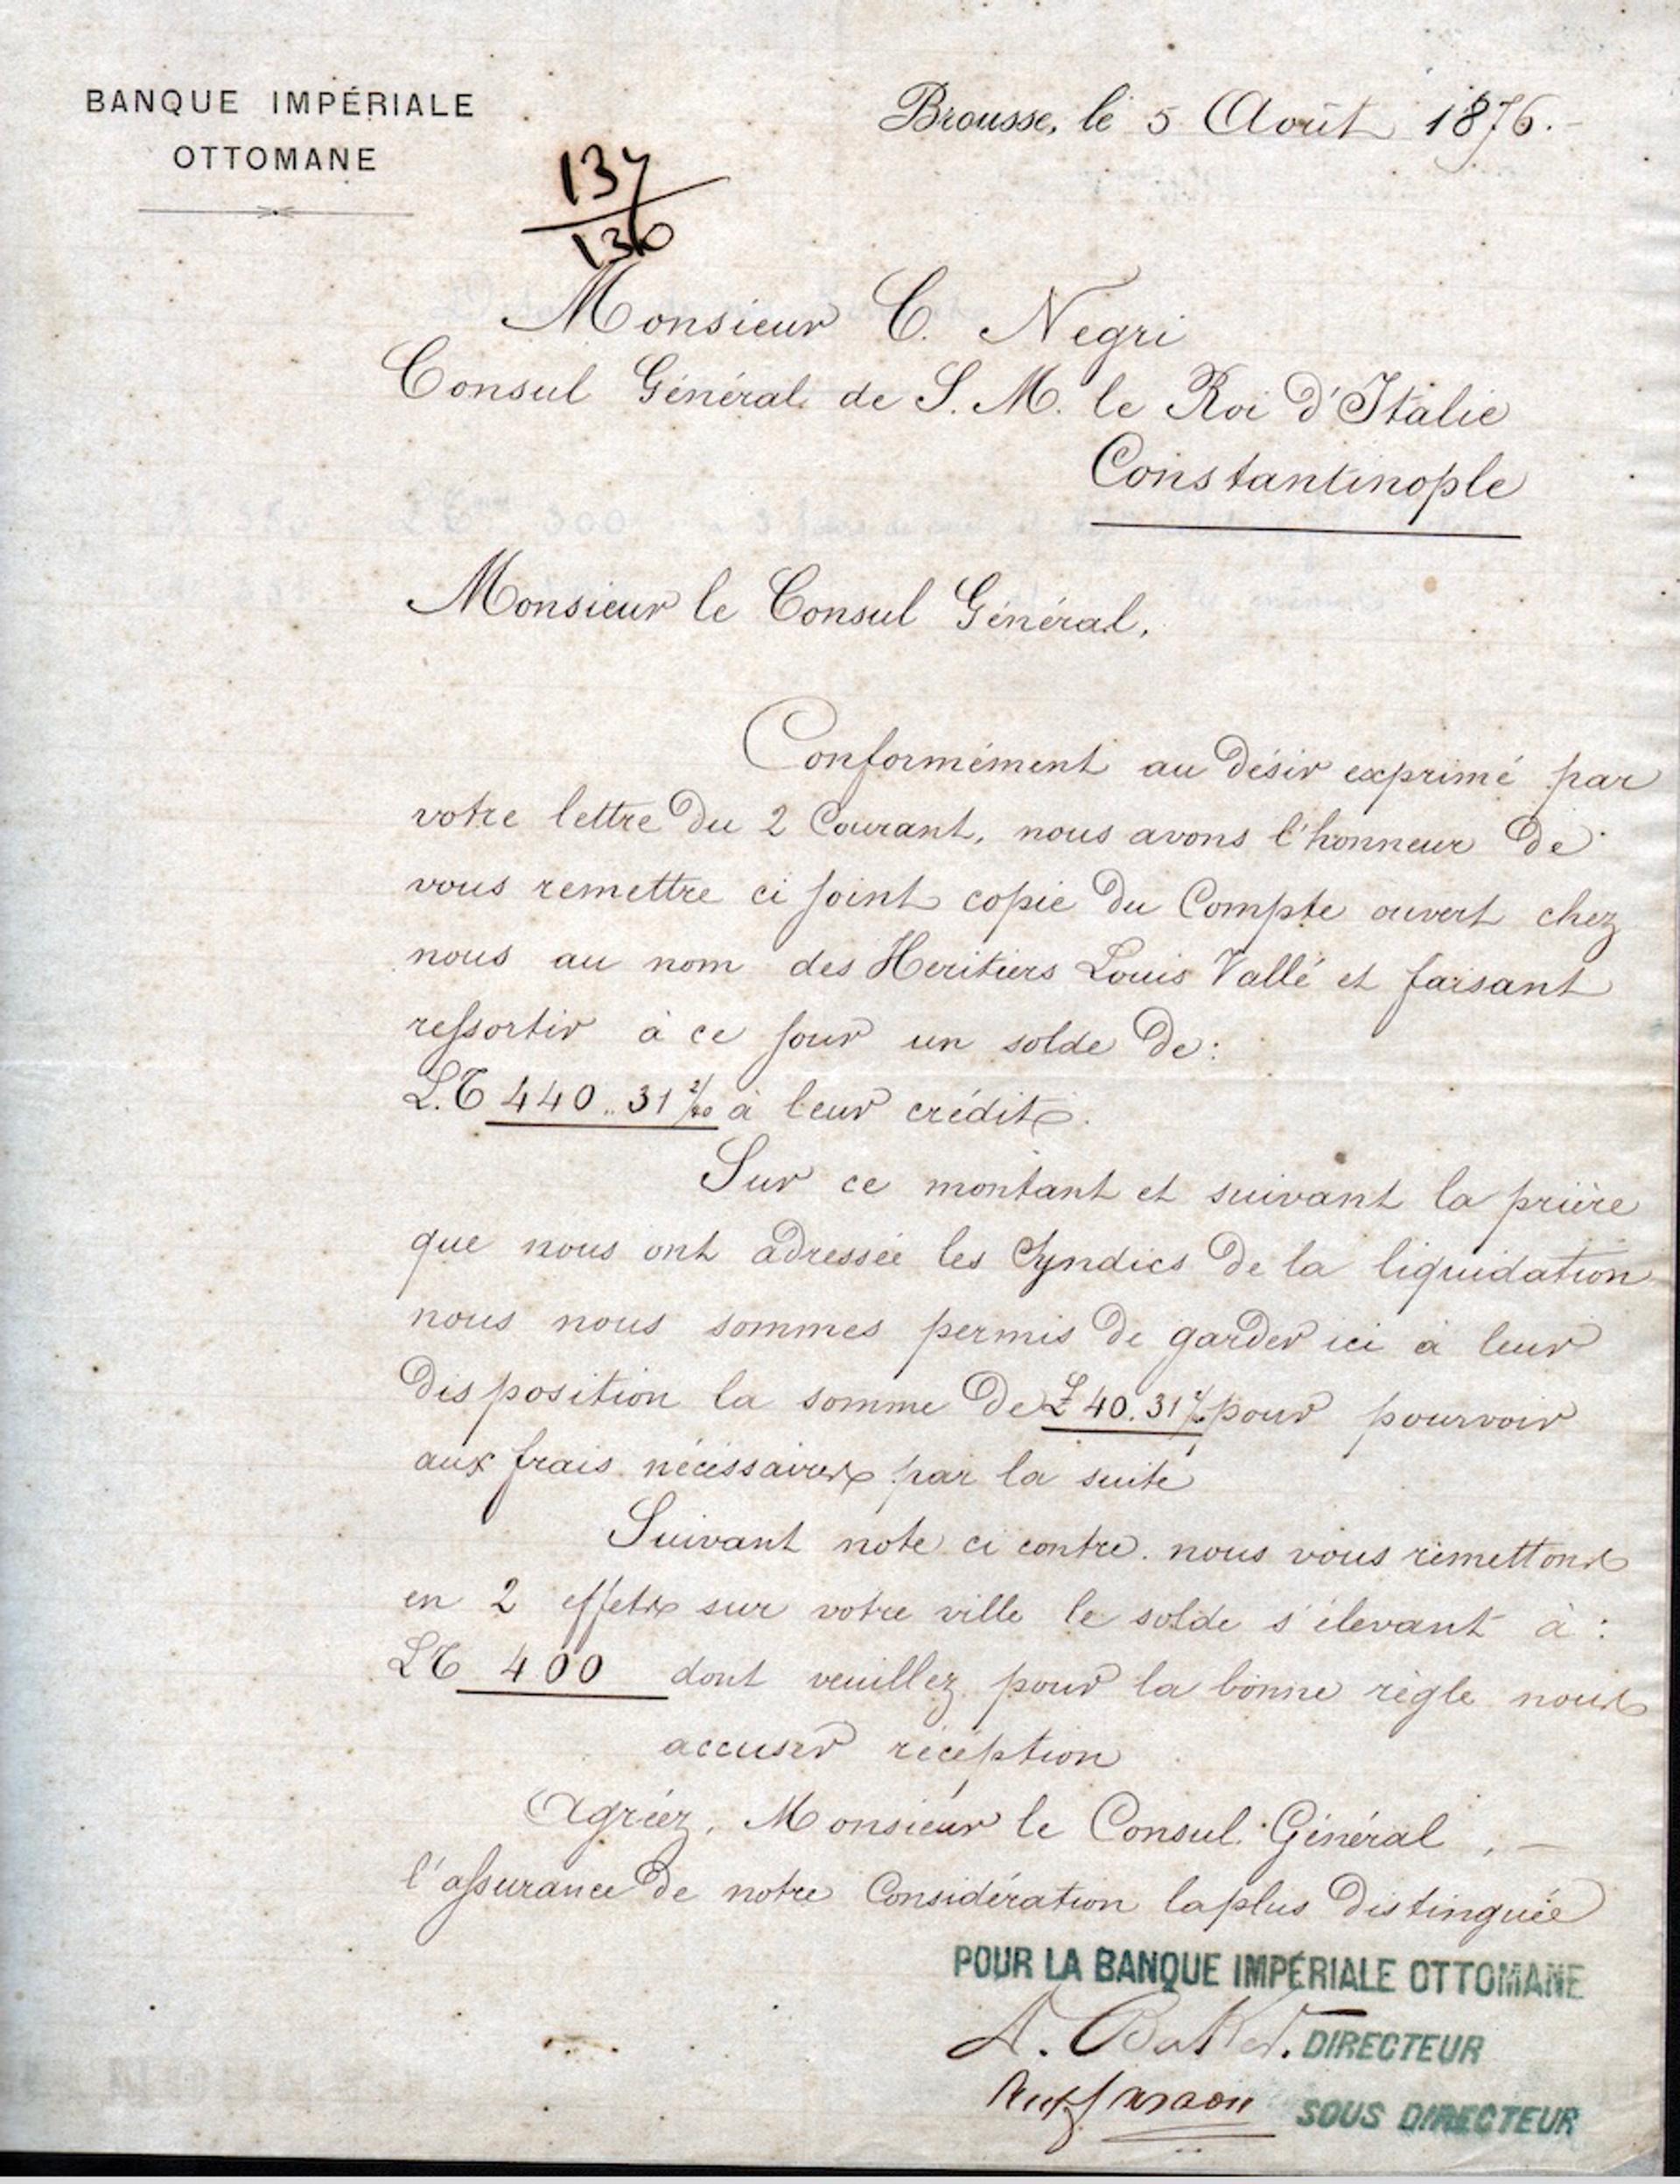 BANQUE IMPÉRIALE
OTTOMANE
Brousse, le 5 Août 1876.
137
136
Monsieur C. Negri
Consul Général de S. M. le Roi d'Italie
Constantinople
Monsieur le Consul Général,
Conformément au désir exprimé par
votre lettre du 2 Courant, nous avons l'honneur de
vous remettre ci joint copie du Compte ouvert chez
nous au nom des Heritiers Louis Vallé et faisant
ressortir à ce jour un solde de:
L.T 440.. 31 à leur crédit.
Sur ce montant et suivant la prière
que nous ont adressée les Syndics de la liquidation
nous nous sommes permis de garder ici à leur
disposition la somme de £ 40.31 pour pourvoir
aux frais nécessaires par la suite
Suivant note ci contre. nous vous remettons
en 2 effets sur votre ville le solde s'élevant à :
LT 400 dont veuillez pour la bonne règle nous
accuser réception
Agréez, Monsieur le Consul Général,
l'assurance de notre Considération la plus distinguée
POUR LA BANQUE IMPÉRIALE OTTOMANE
A. DIRECTEUR
SOUS DIRECTEUR